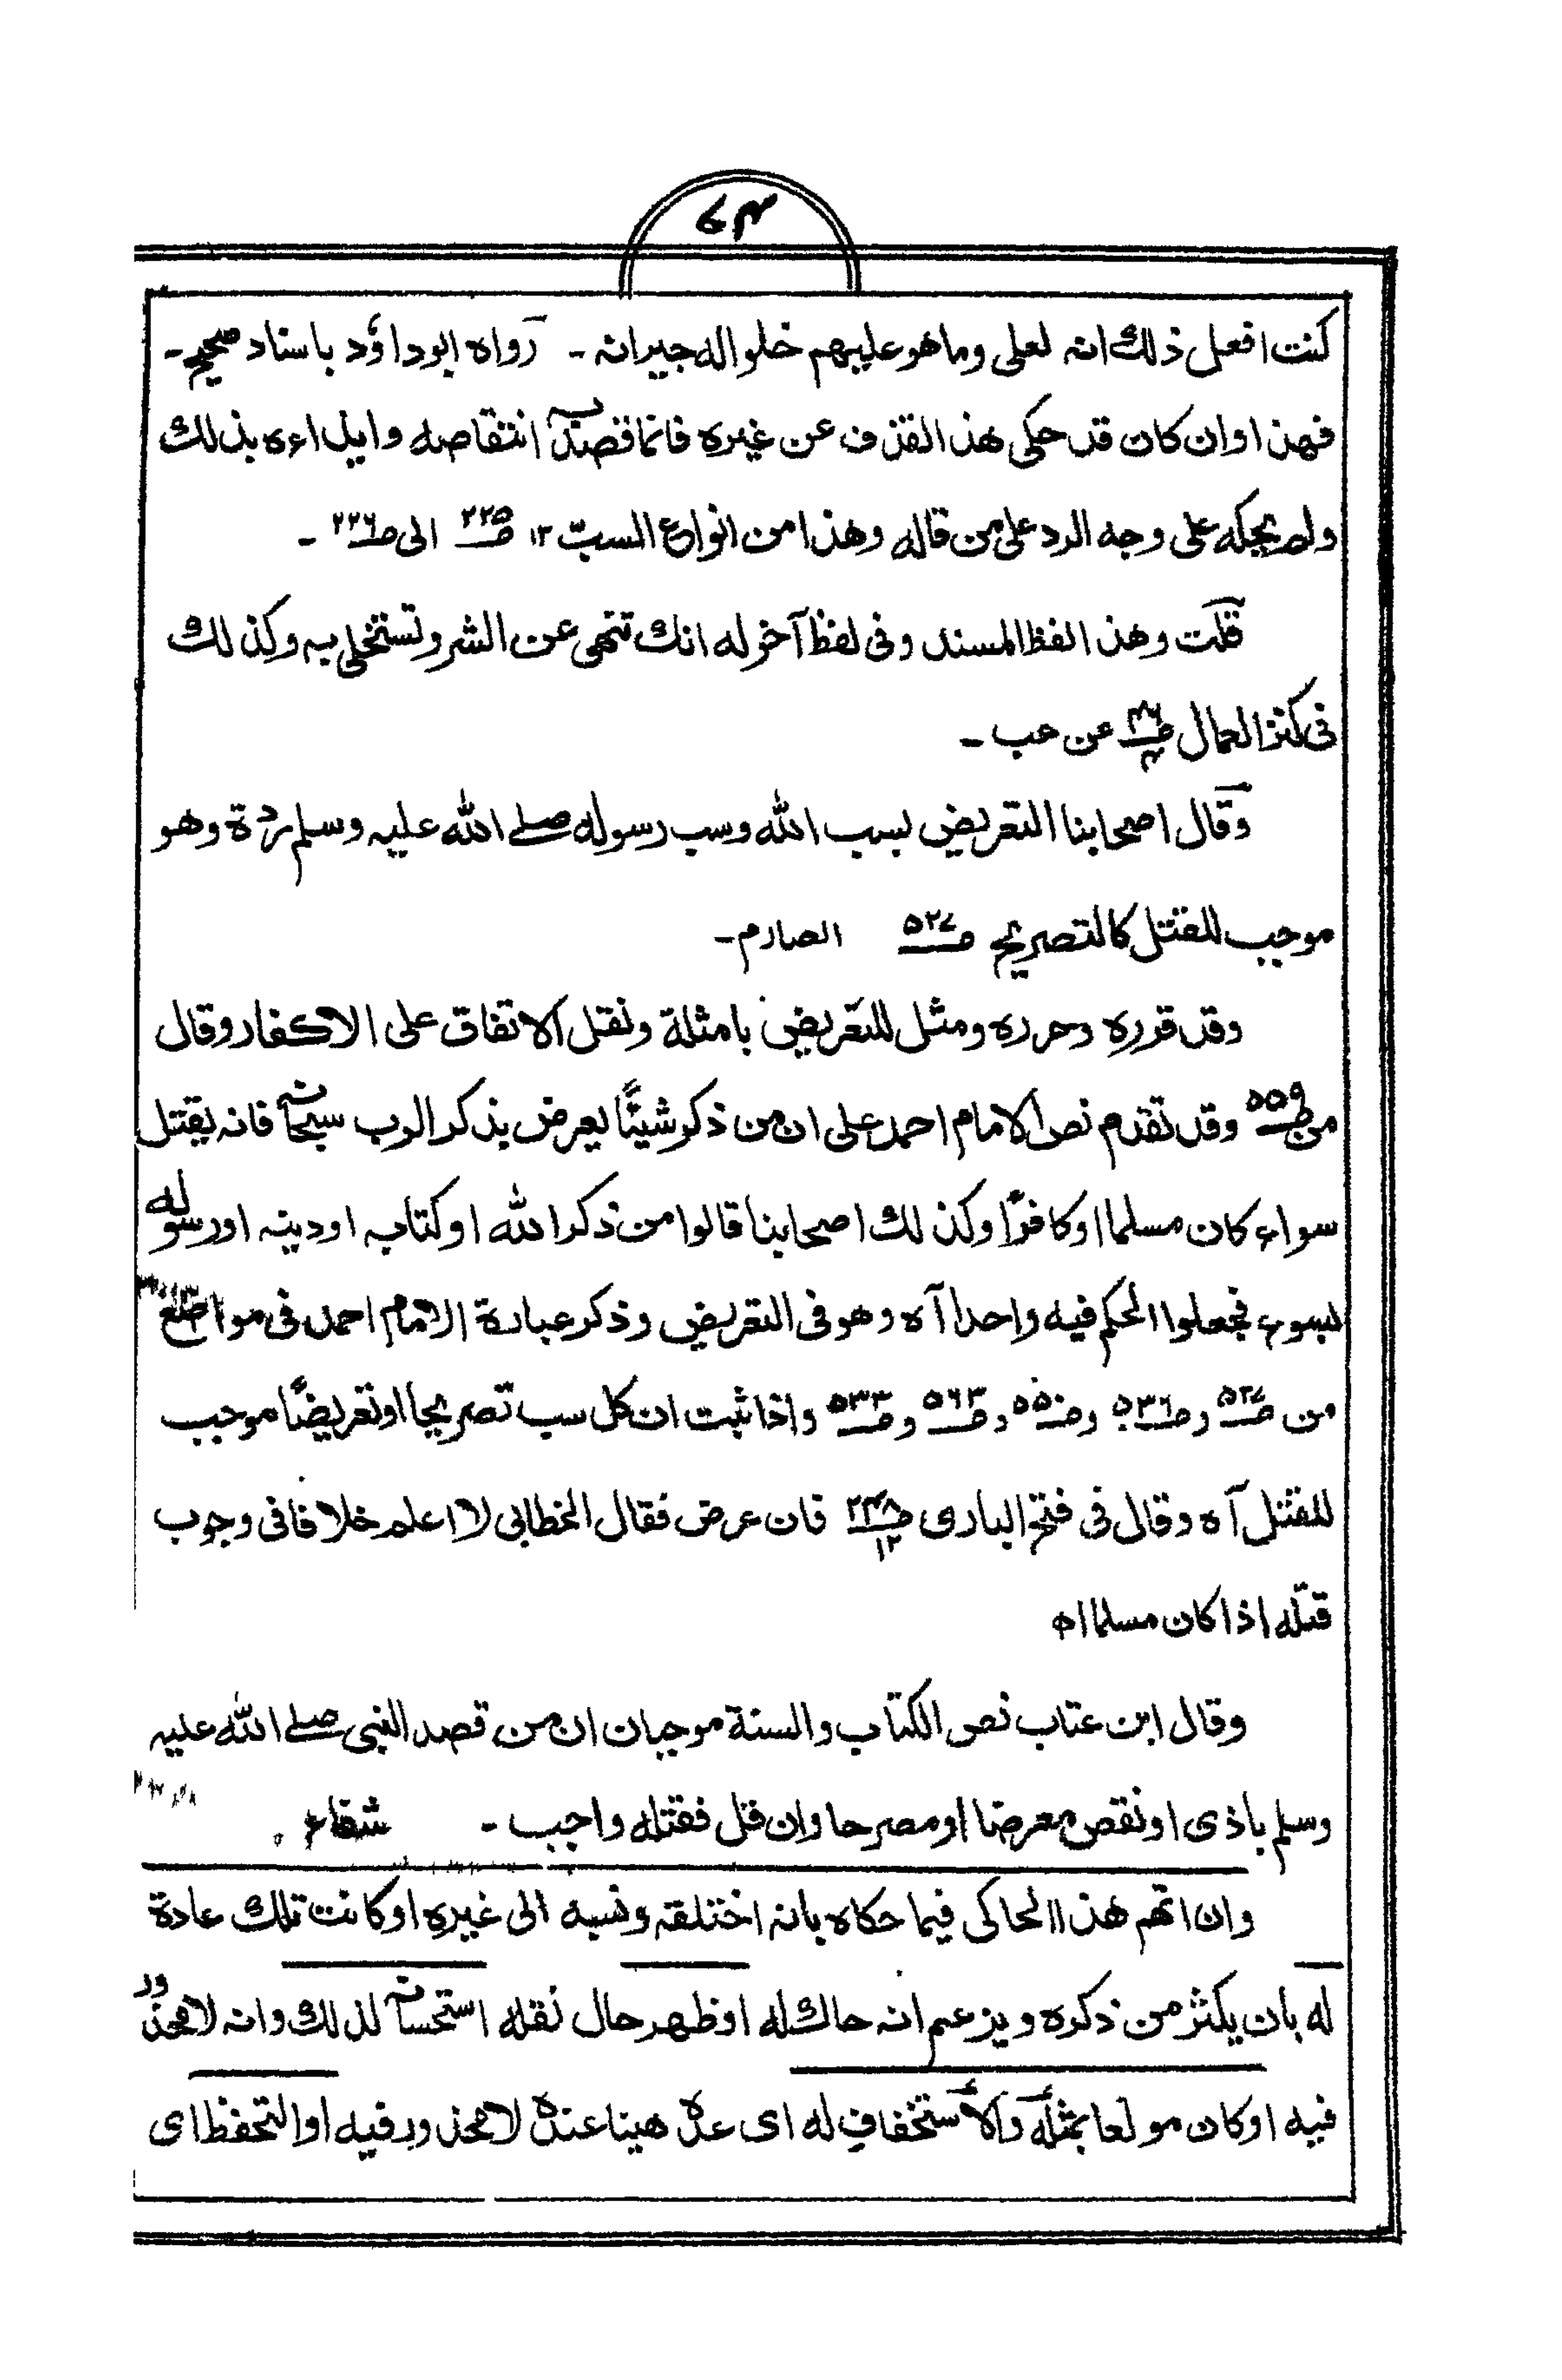 ۷۴
كنت افعل ذلك انه لعلى وما هو عليهم خلوا له جيرانه ـ رواه ابوداؤد باسناد صحيح ـ
فهذا وان كان قد حكى هذا القذف عن غيره فانما قصد به انتقاصه وايذاءه بذلك
ولم يحكه على وجه الرد على من قاله وهذا من انواع السبّ ١٢ صـ ٢٢٥ الى صـ ٢٢٦ ـ
قلت وهذا لفظ المسند وفى لفظ آخر له انك تنهى عن الشر وتستخلى به وكذلك
فى كنز العمال عن حب ـ
وقال اصحابنا التعريض بسب الله وسب رسوله صلے الله عليه وسلم ردة وهو
موجب للقتل كالتصريح صـ ٥٢٧ الصارم ـ
وقد قرره وحرره ومثل للتعريض بامثلة ونقل الاتفاق على الاكفار وقال
من صـ ٥٥٩ وقد تقدم نص الامام احمد على ان من ذكر شيئًا يعرض بذكر الرب سبحانه فانه يقتل
سواء كان مسلما او كافرًا وكذلك اصحابنا قالوا من ذكر الله او كتابه او دينه او رسوله
بسوء فجعلوا الحكم فيه واحدا آه وهو فى التعريض وذكر عبارة الامام احمد فى مواضع
من صـ ٥٢٧ وصـ ٥٣٦ وصـ ٥٥٠ وصـ ٥٦٣ وصـ ٥٣٣ واذا ثبت ان كل سب تصريحا او تعريضًا موجب
للقتل آه وقال فى فتح البارى ١٢ فان عرض فقال الخطابى لا اعلم خلافا فى وجوب
قتله اذا كان مسلما اه
وقال ابن عتاب نص الكتاب والسنة موجبان ان من قصد النبى صلے الله عليه
وسلم باذى او نقص معرضا او مصرحا وان قل فقتله واجب ـ شفاء
وان اتهم هذا الحاكى فيما حكاه بانه اختلقه ونسبه الى غيره او كانت تلك عادة
له بان يكثر من ذكره ويزعم انه حاك له او ظهر حال نقله استحسانه لذلك وانه لا محذور
فيه او كان مولعا بمثله والاستخفاف له اى عده هينا عنده لا محذور فيه او التحفظ اى